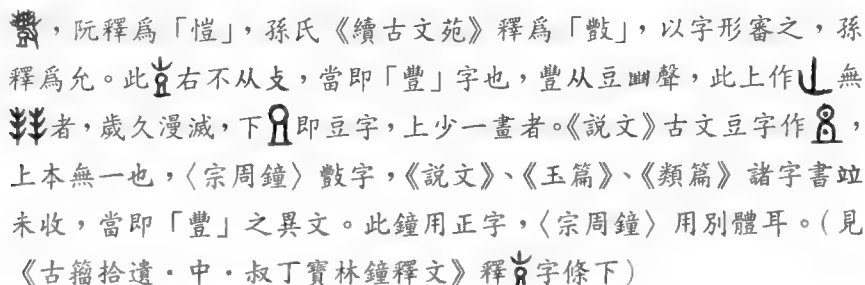 ，阮釋爲「愷」，孫氏《續古文苑》釋爲「數」，以字形審之，孫
釋爲允。此右不从攴，當即「豐」字也，豐从豆𠁳聲，此上作無
者，歲久漫滅，下即豆字，上少一畫者。《説文》古文豆字作，
上本無一也，〈宗周鐘〉字，《説文》、《玉篇》、《類篇》諸字書竝
未收，當即「豐」之異文。此鐘用正字，〈宗周鐘〉用別體耳。（見
《古籀拾遺・中・叔丁寶林鐘釋文》釋字條下）